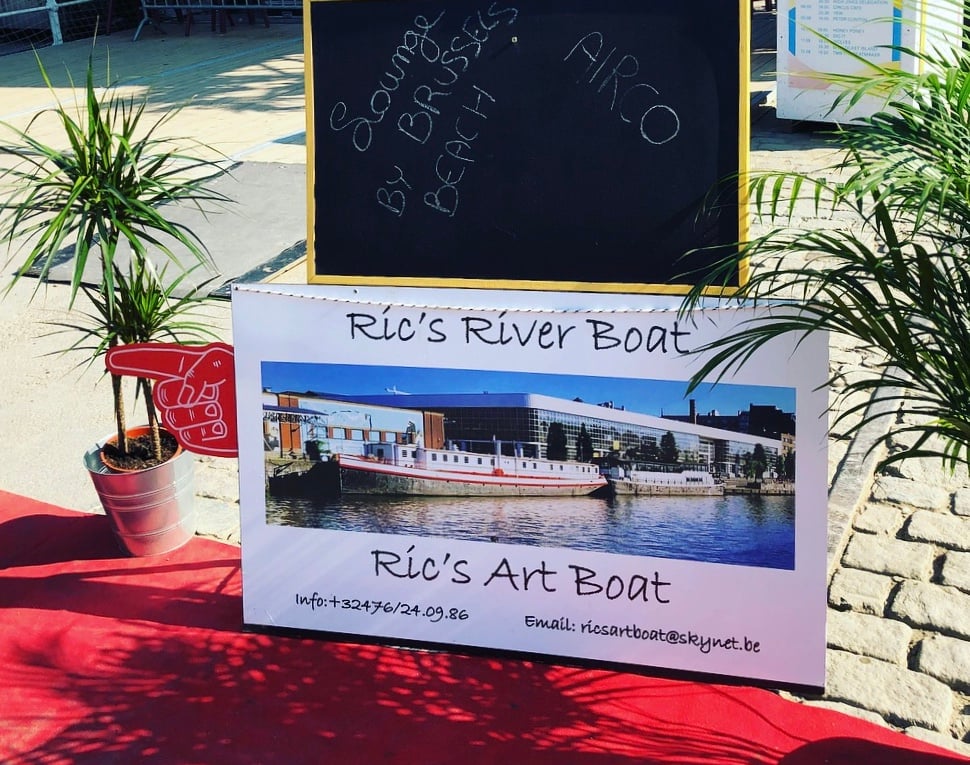 Lounge
BY BRUSSELS
BEACH
AIRCO
Ric's River Boat
Ric's Art Boat
Info:+32476/24.09.86
Email: ricsartboat@skynet.be